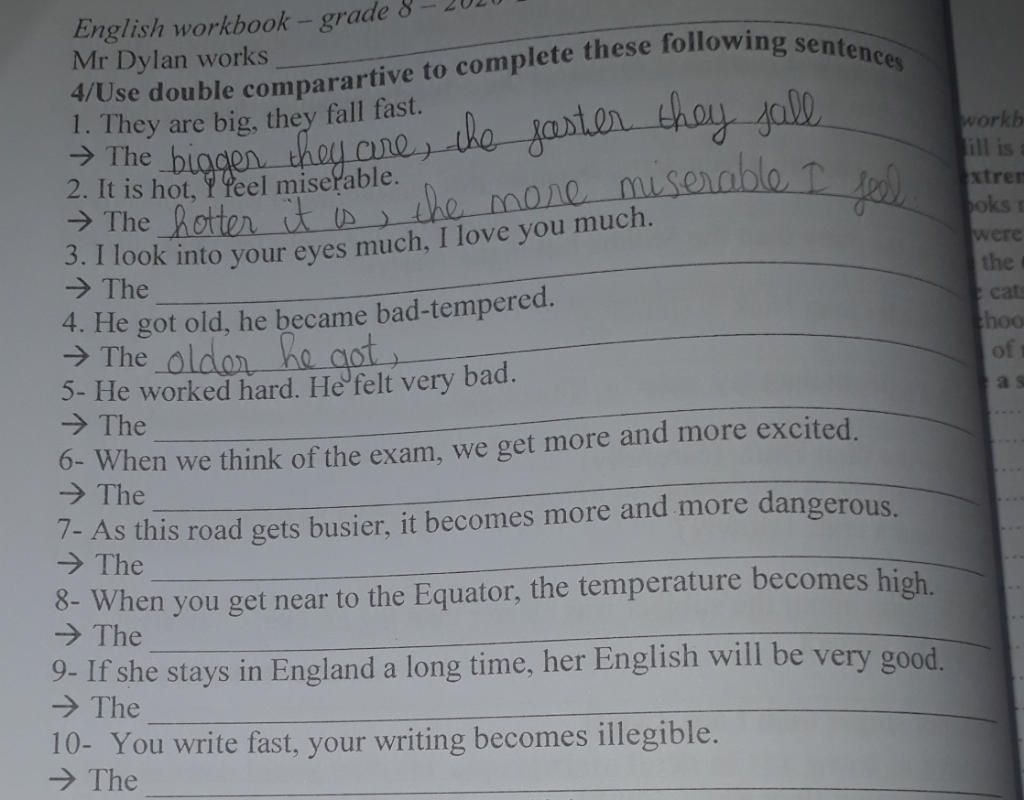 English workbook – grade 8 –
Mr Dylan works
4/Use double comparartive to complete these following sentences
1. They are big, they fall fast.
→ The bigger they are, the faster they fall
2. It is hot, I feel miserable.
→ The hotter it is, the more miserable I feel.
3. I look into your eyes much, I love you much.
→ The
4. He got old, he became bad-tempered.
→ The older he got,
5- He worked hard. He felt very bad.
→ The
6- When we think of the exam, we get more and more excited.
→ The
7- As this road gets busier, it becomes more and more dangerous.
→ The
8- When you get near to the Equator, the temperature becomes high.
→ The
9- If she stays in England a long time, her English will be very good.
→ The
10- You write fast, your writing becomes illegible.
→ The
were
the
of
a s